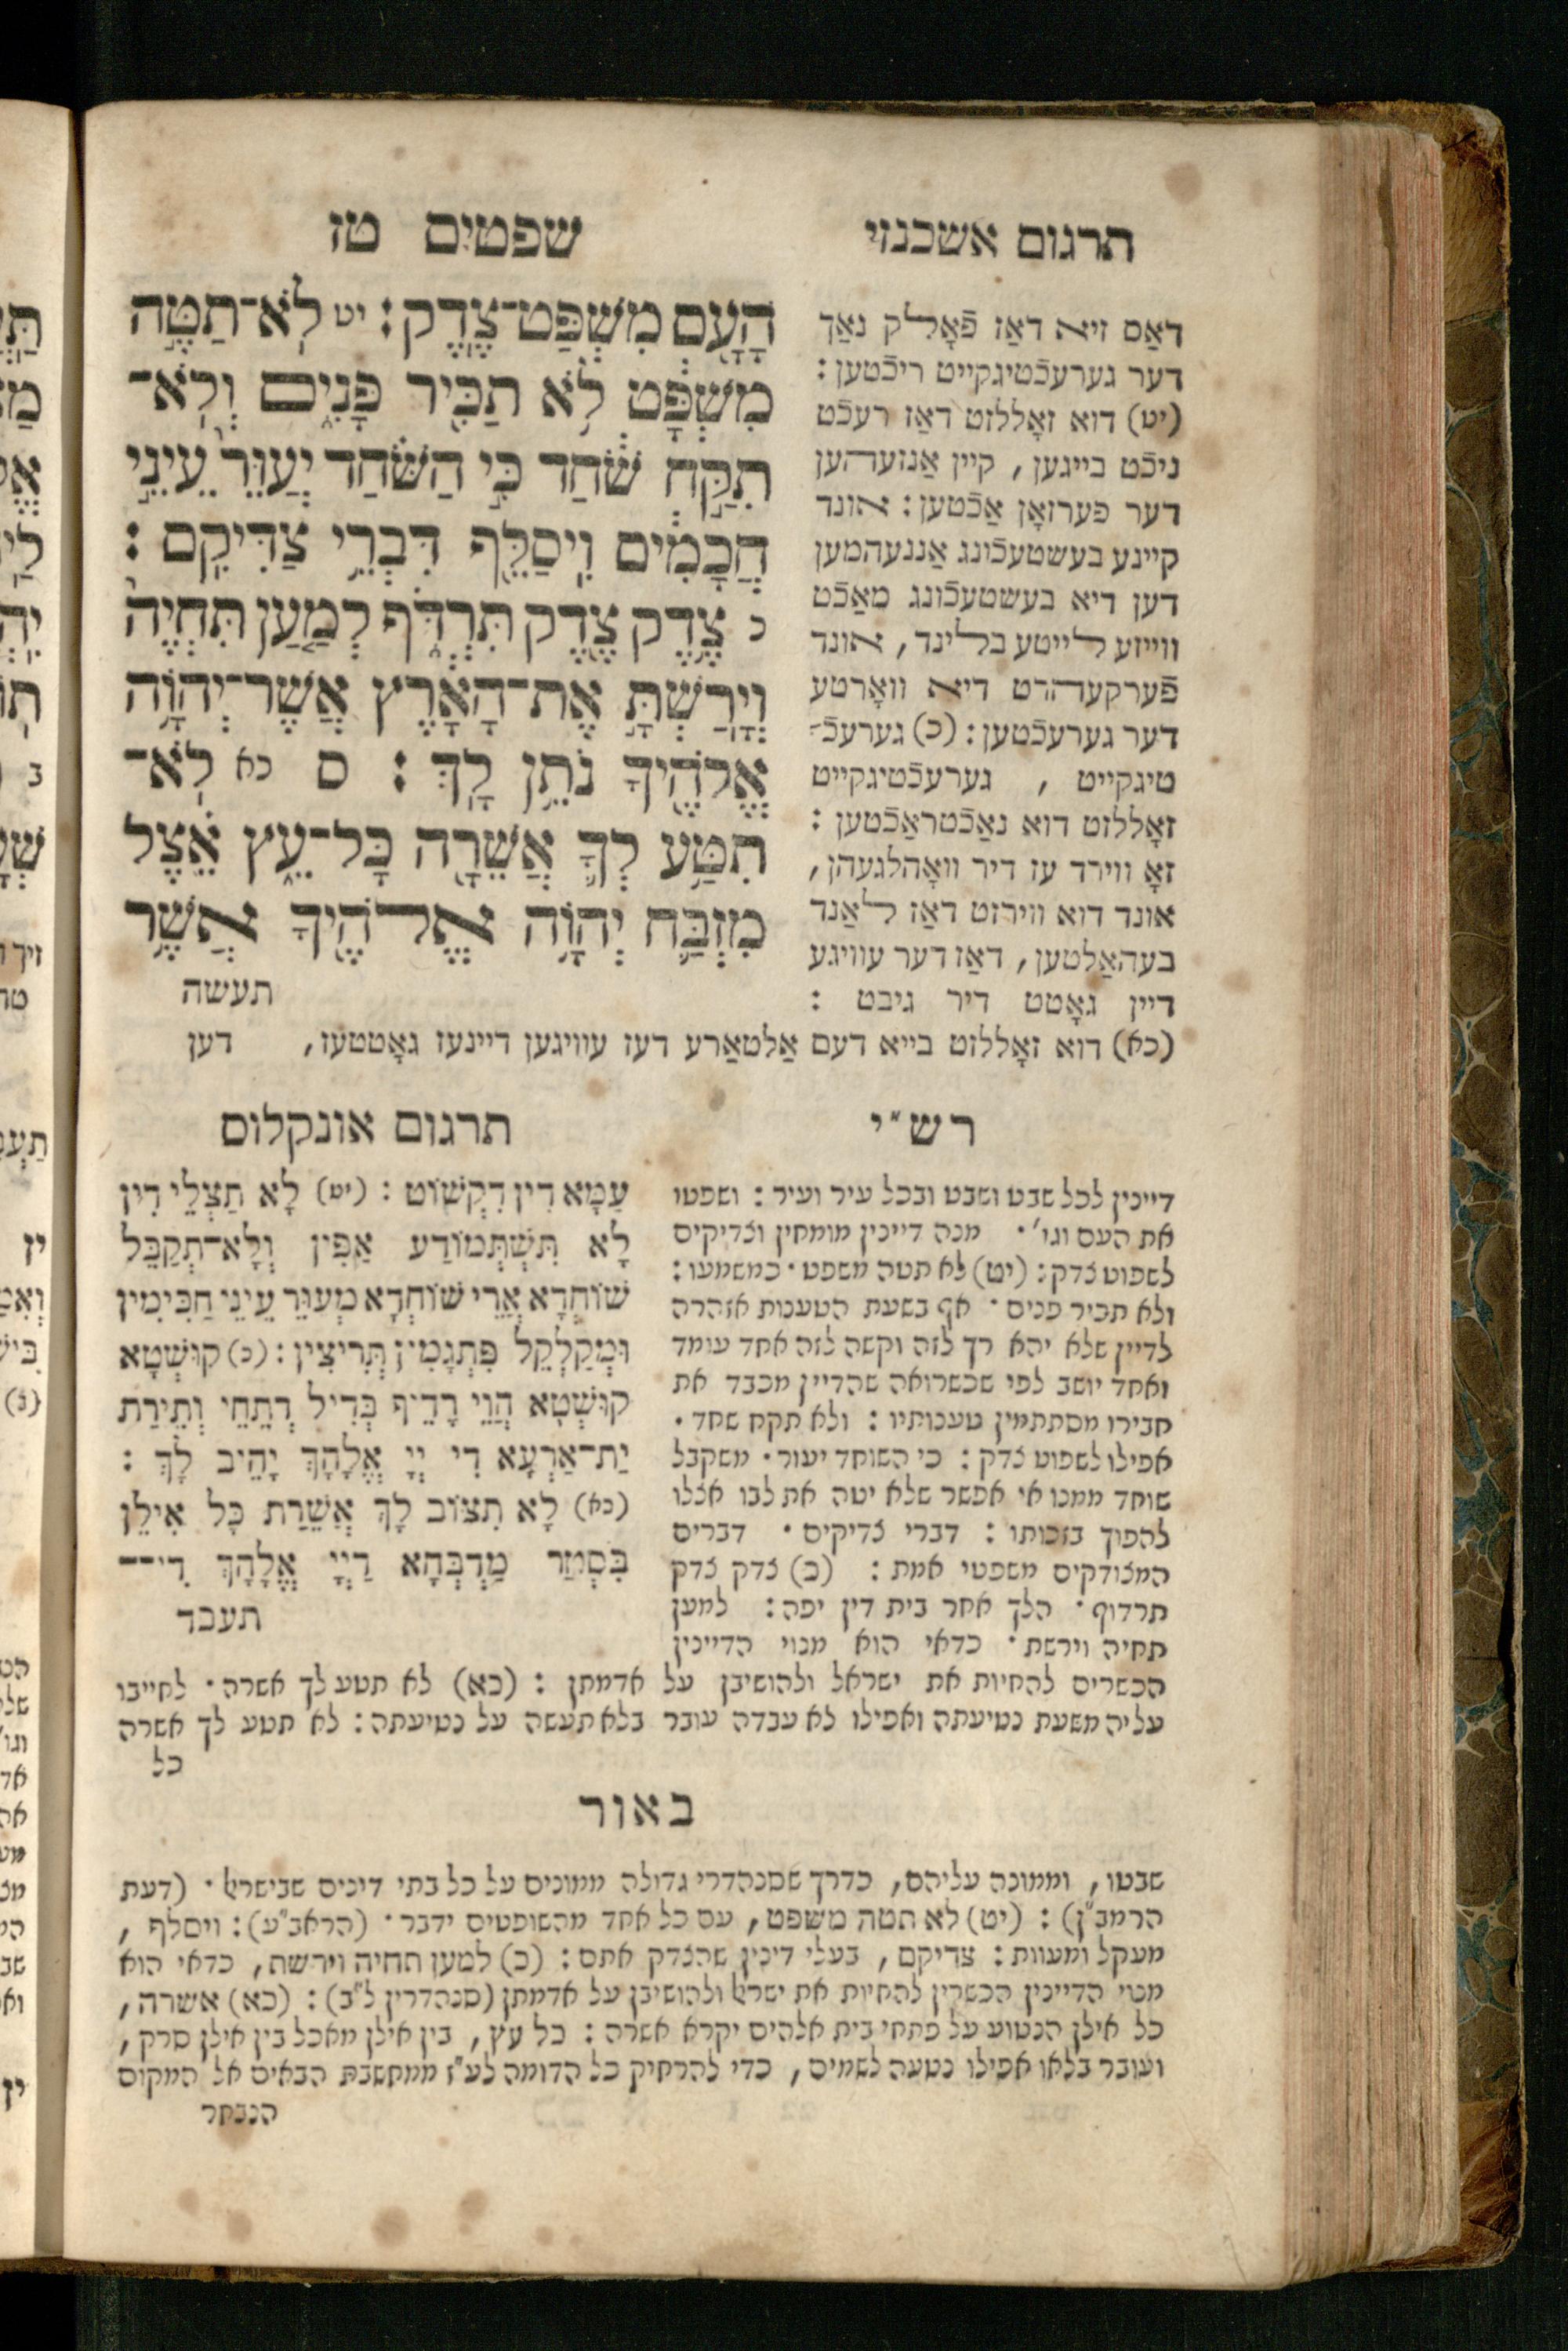 תרגום אשכנזי
שפטים טז
הָעָ֖ם מִשְׁפַּט־צֶֽדֶק׃ יט לֹא־תַטֶּ֣ה
מִשְׁפָּ֔ט לֹ֥א תַכִּ֖יר פָּנִ֑ים וְלֹא־
תִקַּ֣ח שֹׁ֔חַד כִּ֣י הַשֹּׁ֗חַד יְעַוֵּר֙ עֵינֵ֣י
חֲכָמִ֔ים וִֽיסַלֵּ֖ף דִּבְרֵ֥י צַדִּיקִֽם׃
כ צֶ֥דֶק צֶ֖דֶק תִּרְדֹּ֑ף לְמַ֤עַן תִּֽחְיֶה֙
וְיָֽרַשְׁתָּ֣ אֶת־הָאָ֔רֶץ אֲשֶׁר־יְהוָ֥ה
אֱלֹהֶ֖יךָ נֹתֵ֥ן לָֽךְ׃ ס כא לֹֽא־
תִטַּ֥ע לְךָ֛ אֲשֵׁרָ֖ה כָּל־עֵ֑ץ אֵ֗צֶל
מִזְבַּ֛ח יְהוָ֥ה אֱלֹהֶ֖יךָ אֲשֶׁ֥ר
תעשה
דאַס זיא דאַז פֿאָללק נאַך
דער גערעכֿטיגקייט ריכֿטען:
(יט) דוא זאָללזט דאַז רעכֿט
ניכֿט בייגען, קיין אַנזעהען
דער פערזאָן אַכֿטען: אונד
קיינע בעשטעכֿונג אַננעהמען
דען דיא בעשטעכֿונג מאַכֿט
ווייזע לייטע בלינד, אונד
פֿערקעהרט דיא וואָרטע
דער גערעכֿטען: (כ) גערעכֿ־
טיגקייט, גערעכֿטיגקייט
זאָללזט דוא נאַכֿטראַכֿטען:
זאָ ווירד עז דיר וואָהלגעהן,
אונד דוא ווירזט דאַז לאַנד
בעהאַלטען, דאַז דער עוויגע
דיין גאָטט דיר גיבט:
(כא) דוא זאָללזט בייא דעם אַלטאַרע דעז עוויגען דיינעז גאָטטעז, דען
רש״י
דיינין לכל שבט ושבט ובכל עיר ועיר: ושפטו
את העם וגו'. מנה דיינין מומחין וצדיקים
לשפוט צדק: (יט) לא תטה משפט. כמשמעו:
ולא תכיר פנים. אף בשעת הטענות אזהרה
לדיין שלא יהא רך לזה וקשה לזה אחד עומד
ואחד יושב לפי שכשרואה שהדיין מכבד את
חבירו מסתתמין טענותיו: ולא תקח שחד.
אפילו לשפוט צדק: כי השוחד יעור. משקבל
שוחד ממנו אי אפשר שלא יטה את לבו אצלו
להפוך בזכותו: דברי צדיקים. דברים
המצודקים משפטי אמת: (כ) צדק צדק
תרדוף. הלך אחר בית דין יפה: למען
תחיה וירשת. כדאי הוא מנוי הדיינין
הכשרים להחיות את ישראל ולהושיבן על אדמתן: (כא) לא תטע לך אשרה. לחייבו
עליה משעת נטיעתה ואפילו לא עבדה עובר בלא תעשה על נטיעתה: לא תטע לך אשרה
כל
תרגום אונקלוס
עַמָּא דִין דִקְשׁוֹט: (יט) לָא תַצְלֵי דִין
לָא תִּשְׁתְּמוֹדַע אַפִּין וְלָא־תְקַבֵּל
שׁוֹחְדָא אֲרֵי שׁוֹחְדָא מְעַוֵּר עֵינֵי חַכִּימִין
וּמְקַלְקֵל פִּתְגָמִין תְּרִיצִין: (כ) קוּשְׁטָא
קוּשְׁטָא הֲוֵי רָדֵיף בְּדִיל דְתֵחֵי וְתֵירַת
יַת־אַרְעָא דִי יְיָ אֱלָהָךְ יָהֵיב לָךְ:
(כא) לָא תִצּוֹב לָךְ אֲשֵׁרַת כָּל אִילָן
בִּסְטַר מַדְבְּחָא דַיְיָ אֱלָהָךְ דִי־
תעבד
באור
שבטו, וממונה עליהם, כדרך שסנהדרי גדולה ממונים על כל בתי דינים שבישראל. (דעת
הרמב"ן): (יט) לא תטה משפט, עם כל אחד מהשופטים ידבר. (הראב"ע): ויסלף,
מעקל ומעוות: צדיקם, בעלי דינין שהצדק אתם: (כ) למען תחיה וירשת, כדאי הוא
מנוי הדיינין הכשרין להחיות את ישראל ולהושיבן על אדמתן (סנהדרין ל"ב): (כא) אשרה,
כל אילן הנטוע על פתחי בית אלהים יקרא אשרה: כל עץ, בין אילן מאכל בין אילן סרק,
ועובר בלאו אפילו נטעה לשמים, כדי להרחיק כל הדומה לע"ז ממחשבת הבאים אל המקום
הנבחר